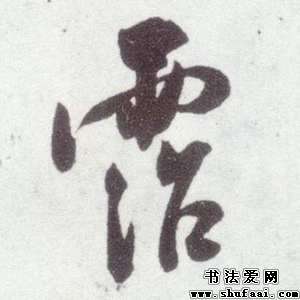 霑
书法爱网
www.shufaai.com